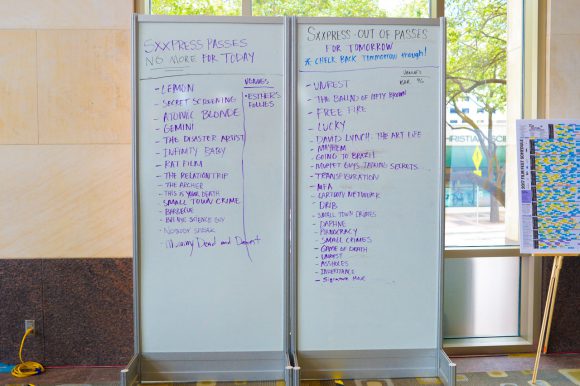 SXXPRESS PASSES
NO MORE FOR TODAY
VENUES
- LEMON
- SECRET SCREENING
- ATOMIC BLONDE
- GEMINI
- THE DISASTER ARTIST
- INFINITY BABY
- RAT FILM
- THE RELATIONTRIP
- THE ARCHER
- THIS IS YOUR DEATH
SMALL TOWN CRIME
- BARBECUE
- BILL NYE SCIENCE GUY
- NOBODY SPEAK
- Dead and
- ESTHER'S
FOLLIES
SXXPRESS - OUT OF PASSES
FOR TOMORROW
* CHECK BACK TOMORROW though!
VENUES
- UNREST
- THE BALLAD OF LEFTY BROWN
- FREE FIRE
- LUCKY
- DAVID LYNCH: THE ART LIFE
- MAYHEM
- GOING TO BRAZIL
- MUPPET GUYS TALKING SECRETS
- TRANSFIGURATION
- MFA
- CARTOON NETWORK
- DRIB
- SMALL TOWN CRIMES
- DAPHNE
- PORNOCRACY
- SMALL CRIMES
- GAME OF DEATH
- UNREST
- ASSHOLES
- INHERITANCE
- Signature Move
2017 FILM FEST SCHEDULE
CHRISTIAN SCIENCE